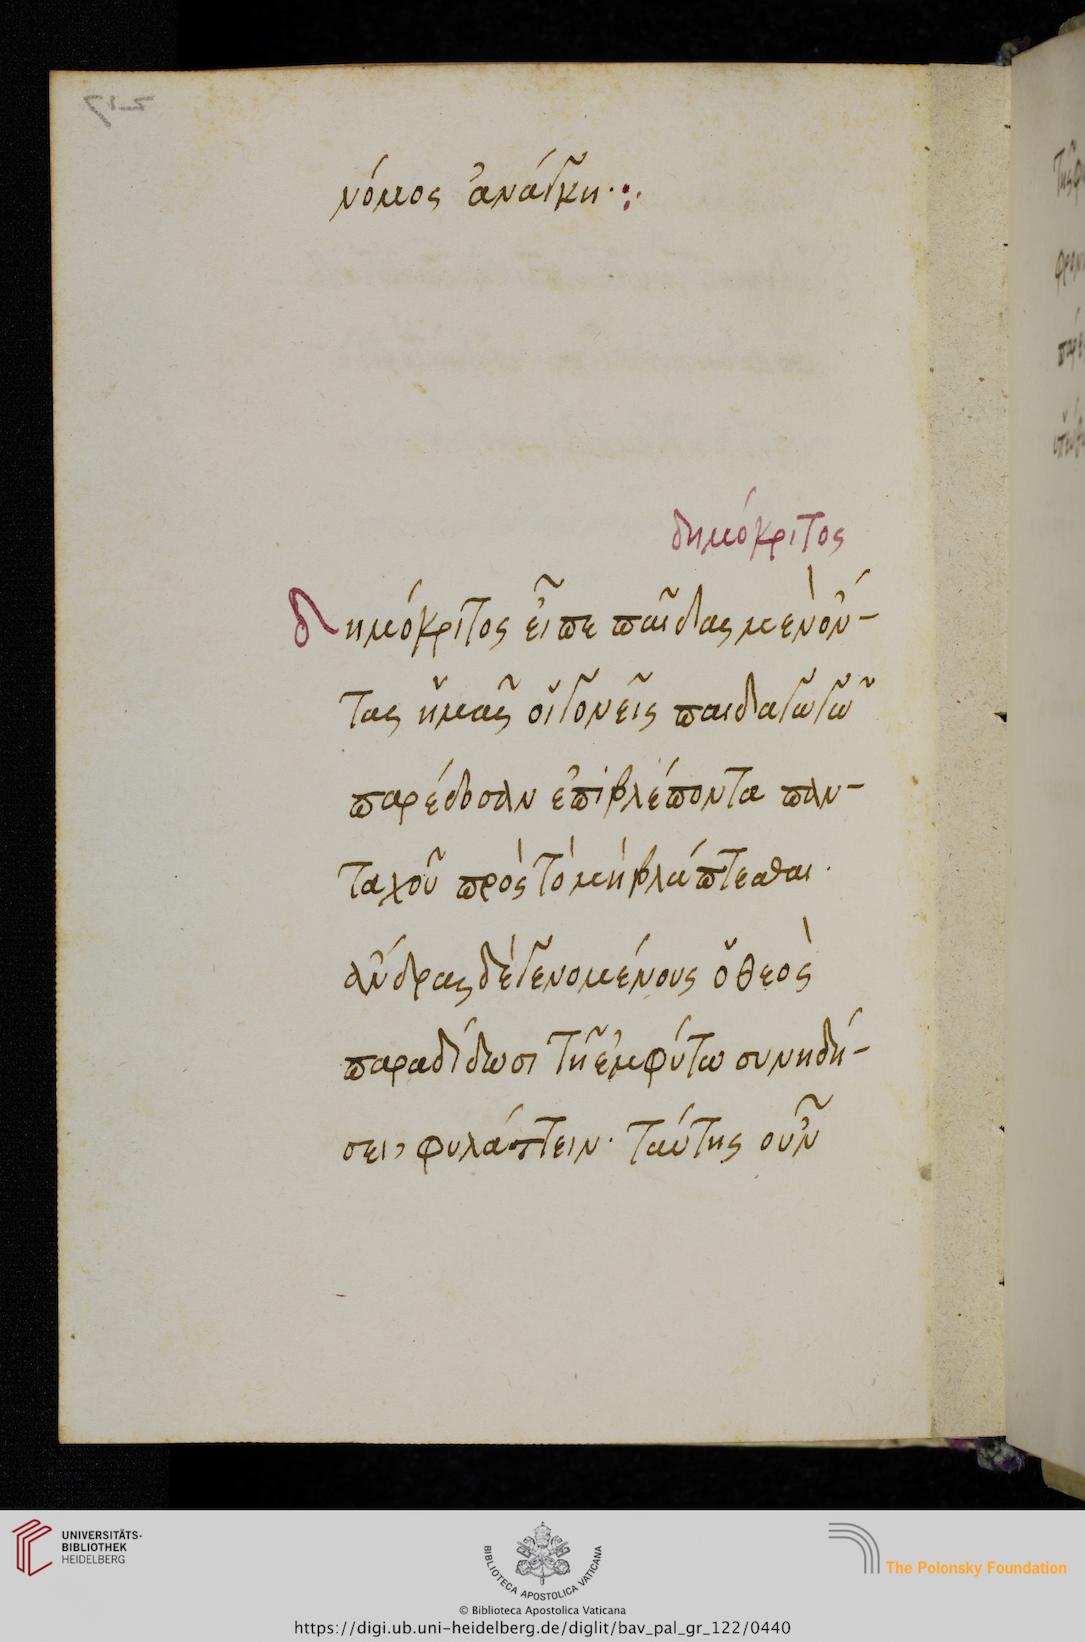 νόμος ἀνάγκη·:·
δημόκριτος
δημόκριτος εἶπε παῖδας μὲν ὄν-
τας ἡμᾶς οἱ γονεῖς παιδαγωγῶ
παρέδοσαν ἐπιβλέποντα παν-
ταχοῦ πρὸς τὸ μὴ βλάπτεσθαι·
ἄνδρας δὲ γενομένους ὁ θεὸς
παραδίδωσι τῆ ἐμφύτω συνηδή-
σει, φυλάττειν· ταύτης οὖν
UNIVERSITÄTS-
BIBLIOTHEK
HEIDELBERG
BIBLIOTECA APOSTOLICA VATICANA
The Polonsky Foundation
© Biblioteca Apostolica Vaticana
https://digi.ub.uni-heidelberg.de/diglit/bav_pal_gr_122/0440